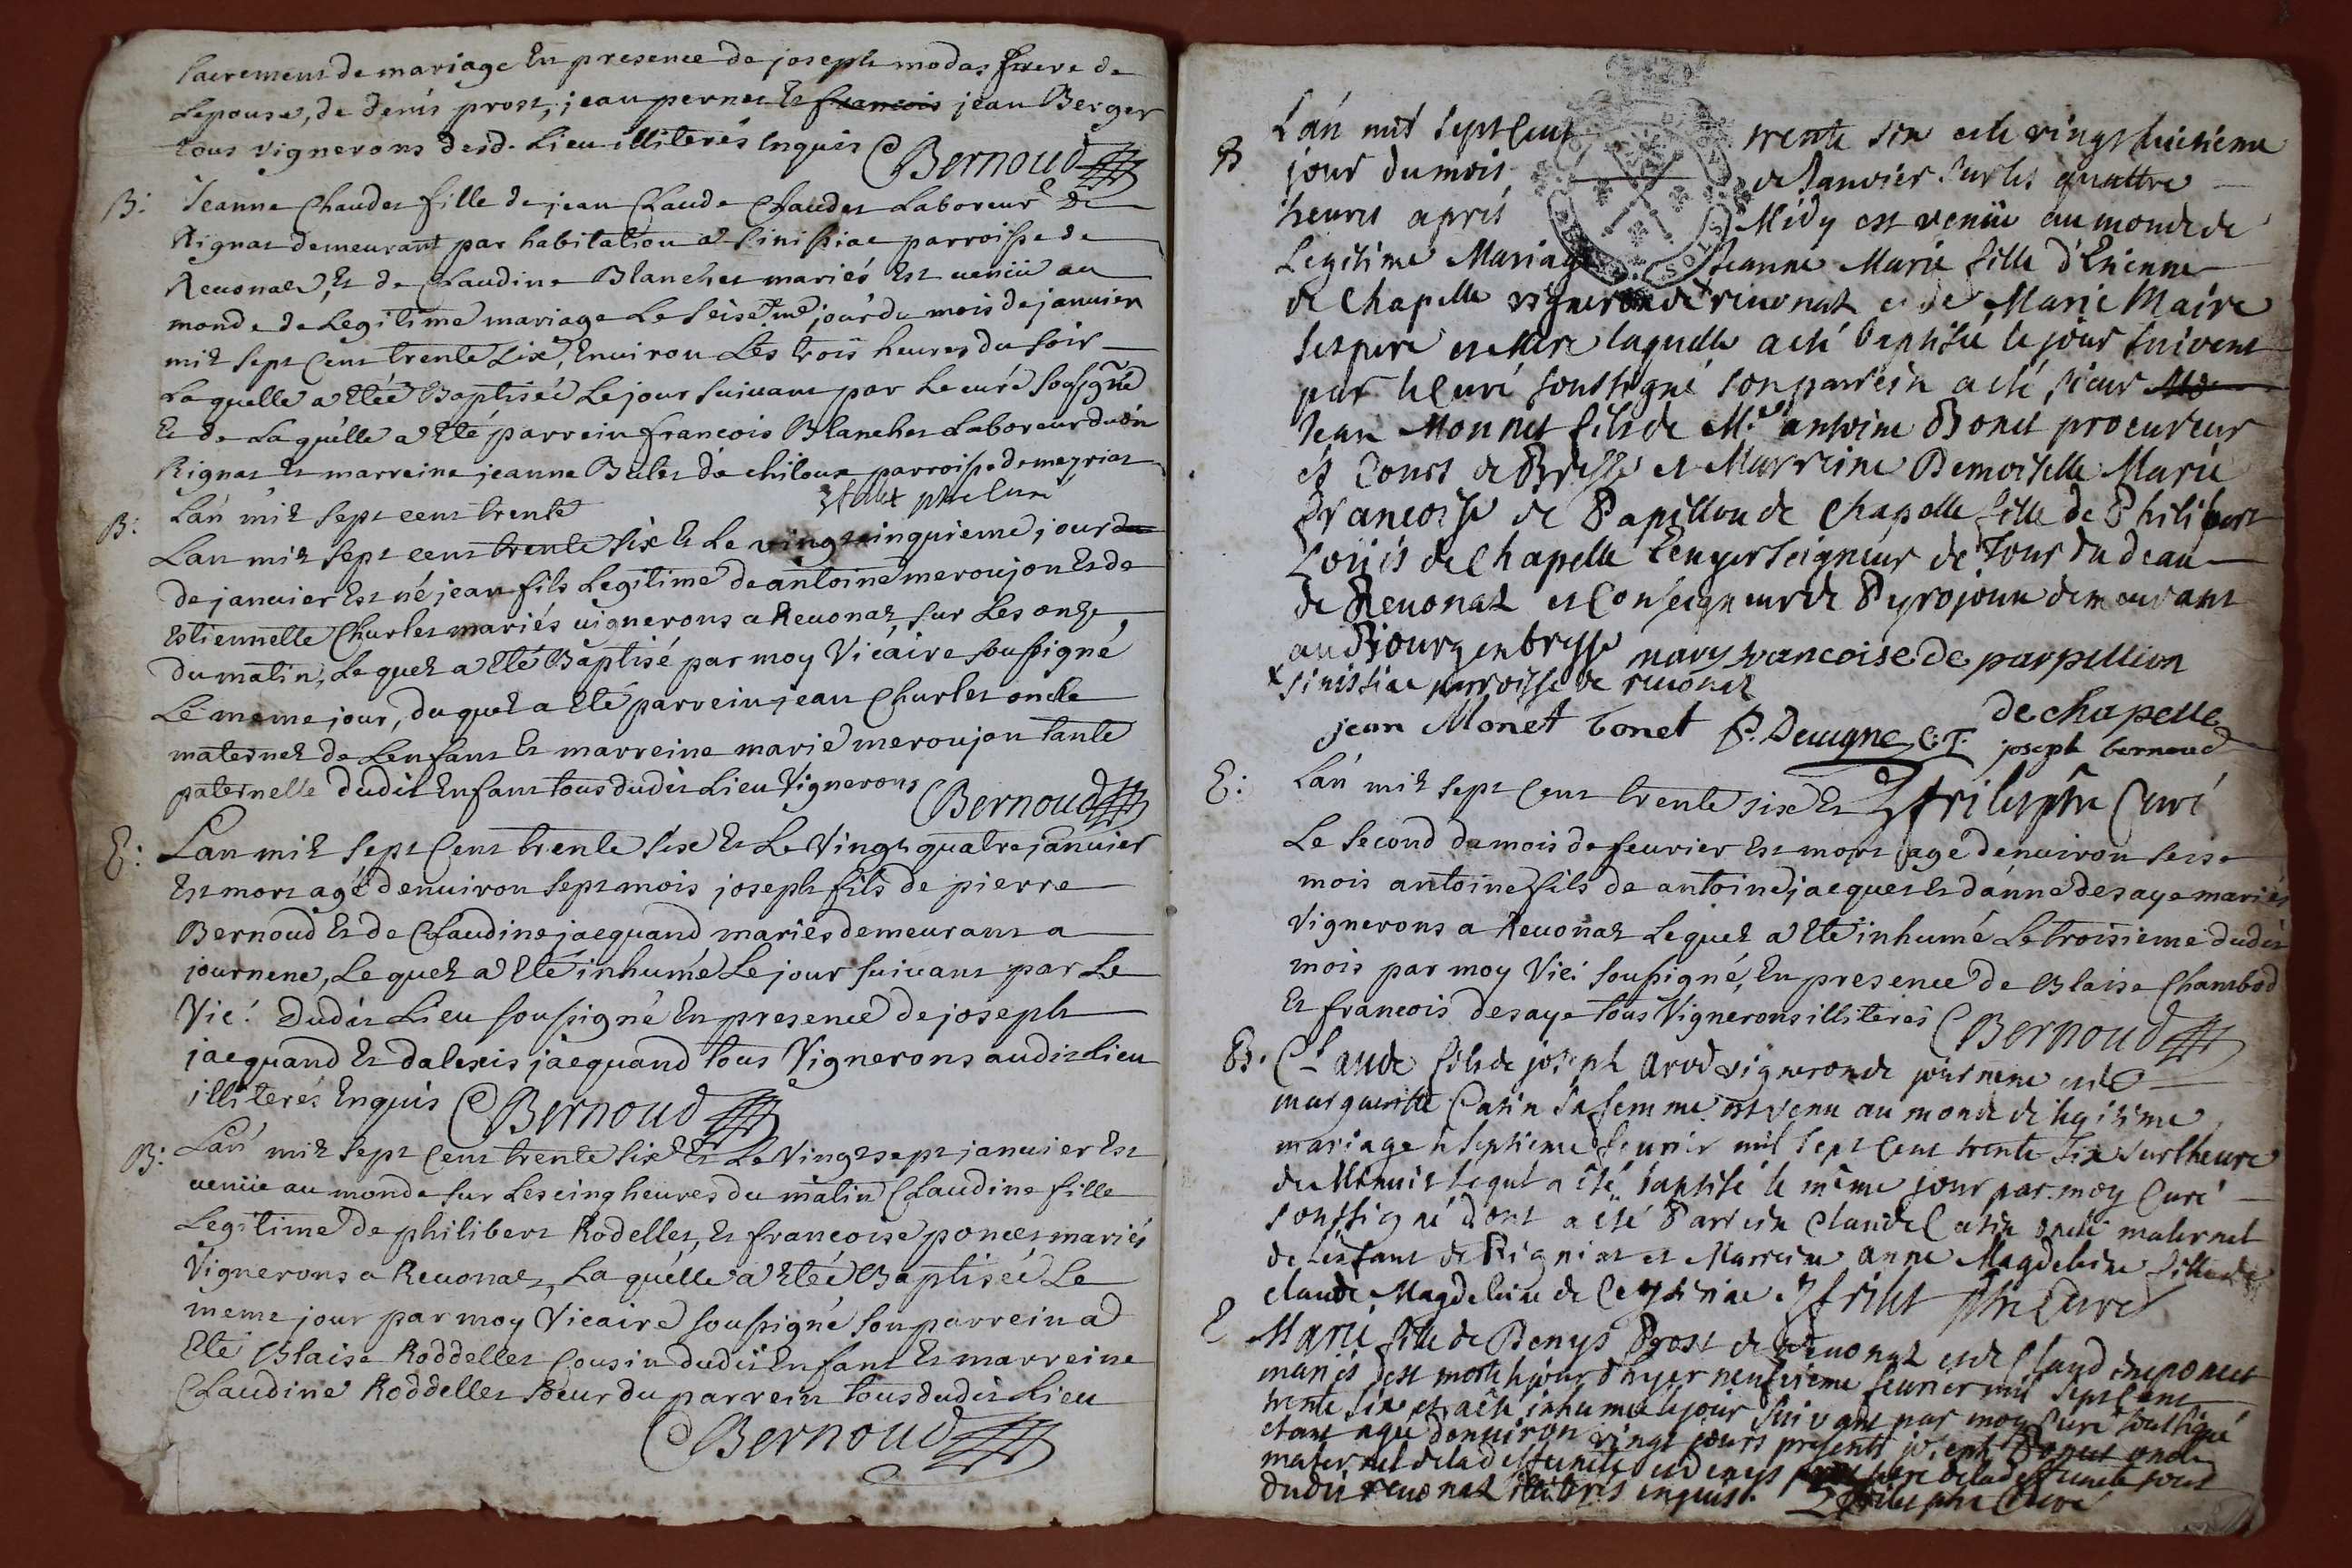 sacrement de mariage Et en presence de joseph modas frere de
Lepouse, de denis prost, jean pernet Et francois jean Berger
tous vignerons desd. Lieu illiterés Enquis Bernoud
B: Jeanne Chaudet fille de jean Claude Chaudet Laboreur De
Rignat demeurant par habitation a Sinissiac parroisse de
Reuonas, Et de Claudine Blanchet mariés Est venüe au
monde de Legitime mariage Le seiseme jour du mois de januier
mil sept Cent trente six, Enuiron Les trois heures du soir
La quelle a Eteé Baptisée Le jour suiuant par Le curé Sousigné
Et de La quelle a Eté parrein francois Blanchet Laboreur dudit
Rignat Et marreine jeanne Bulet de chiloux parroisse de meyriat
Lan mil sept cent trente
Lan mil sept cent trente six Et Le vingt cinquieme jour du
de januier Est né jean fils Legitime de antoine meroujon Et de
Estiennette Churlet mariés uignerons a Reuonas sur Les onze
du matin, Le quel a Eté Baptisé par moy Vicaire soussigné
Le meme jour, du quel a Eté parrein jean Churlet oncle
maternel de Lenfant Et marreine marie meroujon tante
paternelle dudit Enfant tous dudit Lieu Vignerons Bernoud
E: Lan mil sept Cent trente six Et Le Vingt quatre januier
Est mort agé denuiron sept mois joseph fils de pierre
Bernoud Et de Claudine jacquand mariés demeurant a
journene, Le quel a Eté inhumé Le jour suiuant par Le
Vic: dudit Lieu soussigné En presence de joseph
jacquand Et dalexis jacquand tous Vignerons audit Lieu
illiterés Enquis Bernoud
B: Lan mil sept Cent trente six Et Le Vingt sept januier Est
uenüe au monde sur Les cinq heures du matin Claudine fille
Legitime de philibert Rodellet, Et francoise poncet mariés
Vignerons a Reuonas, La quelle a Eteé Baptisée Le
meme jour par moy Vicaire soussigné son parrein a
Eté Blaise Roddellet Cousin dudit Enfant Et marreine
Claudine Roddellet soeur du parrein tous dudit Lieu
Bernoud
B Lan mil sept Cent trente six et le vingt huictieme
jour du mois de Janvier sur les quattre
heures apres Midy est venüe au monde de
Legitime Mariage Jeanne Marie fille d'Etienne
de Chapelle vigneron de reuonas et de Marie Maire
ses pere et Mere laquelle a eté baptisée le jour suivent
par le Curé soussigné son parrein a eté, sieur
Jean Monnet fils de Mr. antoine Bonet procureur
és Cours de Bresse et Marreine Demoiselle Marie
francoise de Papillion de Chapelle fille de Philibert
Loüis de Chapelle Ecuyer seigneur de Tour du deau
de Reuonas et Conseigneur de Peyrojoux demeurant
au Bourg en bresse mary francoise de parpillion
x Sinissiac parroisse de reuonas de chapelle
jean Monet bonet P. Deuigne C. T. joseph bernoud
E: Lan mil sept Cent trente six Et ptre Curé
Le second du mois de feurier Est mort agé denuiron seise
mois antoine fils de antoine jacquet Et danne desaye mariés
Vignerons a Reuonas Le quel a Eté inhumé Le troisieme dudit
mois par moy Vic: soussigné, En presence de Blaise Chambod
Et francois desaye tous Vignerons illiterés Bernoud
B. Claude fils de joseph arod vigneron de journene et de
marguerite Catin sa femme est venu au monde de legitime
mariage le septieme feurier mil sept Cent trente six sur lheure
de Menuit lequel a eté baptisé le même jour par moy Curé
soussigné dont a eté Parrein Claude Catin oncle maternel
de lenfant de Rignat et Marreine anne Magdeleine fille de
claude Magdelaine de Ceysiriac ptre Curé
E Marie fille de Denys Prost de Reuonas et de Claudine poncet
mariés est morte le jour d'hyer neufvieme feurier mil sept Cent
trente six et a eté inhumée le jour suivant par moy Curé soussigné
etant agée denuiron vingt jours presents joseph Poncet oncle
maternel de la deffuncte et denys pere de la deffuncte tous
dudit reuonas illiterés enquis. ptre Curé